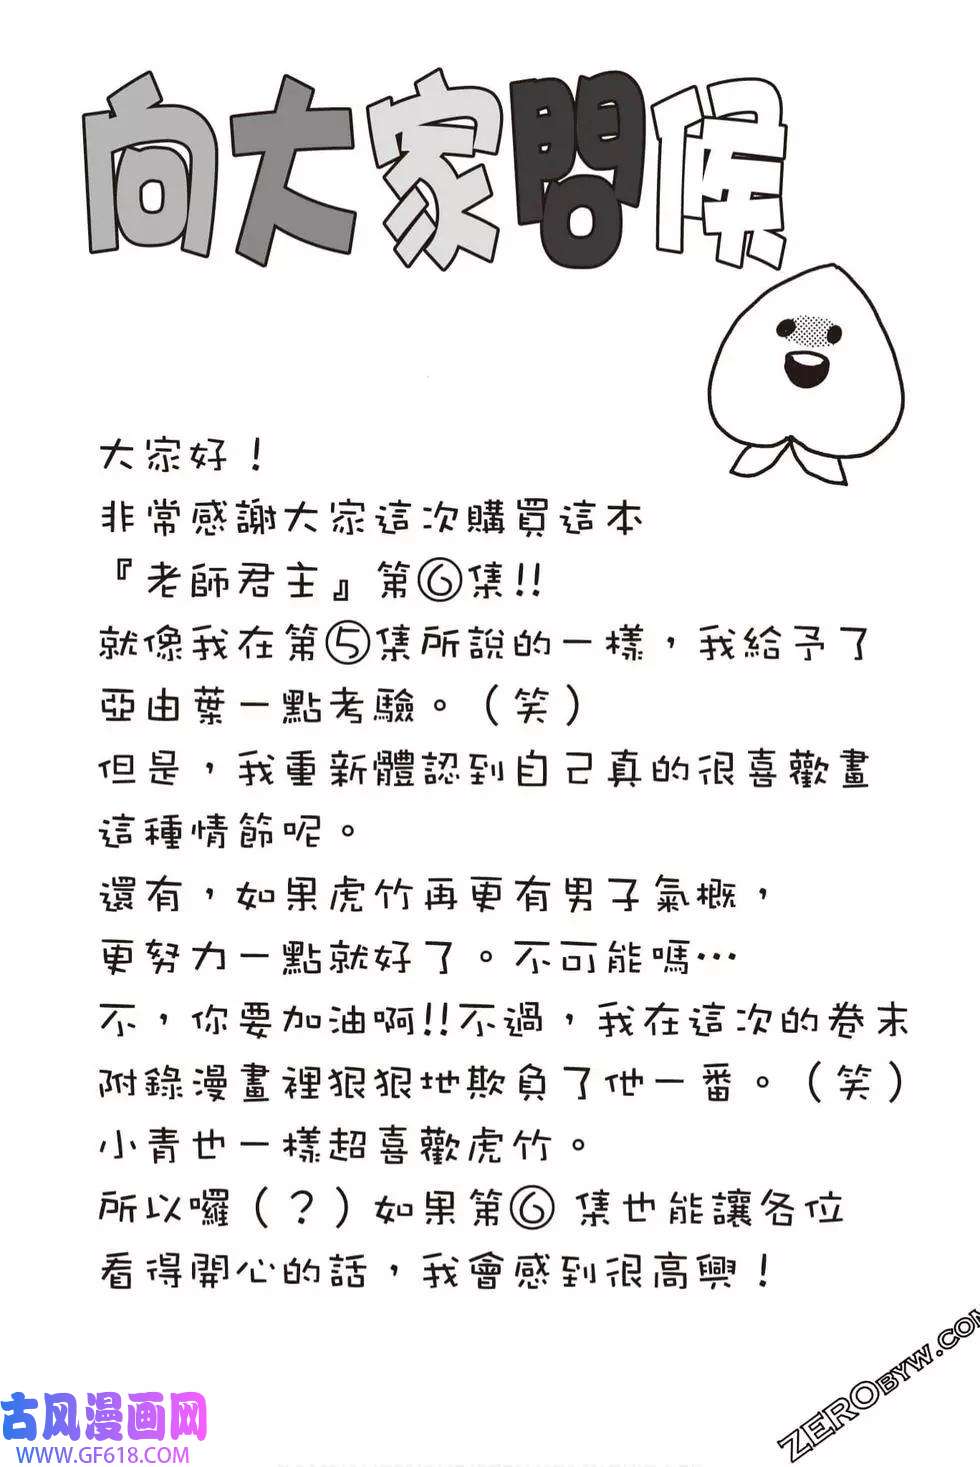 向大家問候
大家好！
非常感謝大家這次購買這本
『老師君主』第⑥集!!
就像我在第⑤集所說的一樣，我給予了
亞由葉一點考驗。（笑）
但是，我重新體認到自己真的很喜歡畫
這種情節呢。
還有，如果虎竹再更有男子氣概，
更努力一點就好了。不可能嗎…
不，你要加油啊!!不過，我在這次的卷末
附錄漫畫裡狠狠地欺負了他一番。（笑）
小青也一樣超喜歡虎竹。
所以囉（？）如果第⑥集也能讓各位
看得開心的話，我會感到很高興！
ZEROBYW.COM
古风漫画网
WWW.GF618.COM